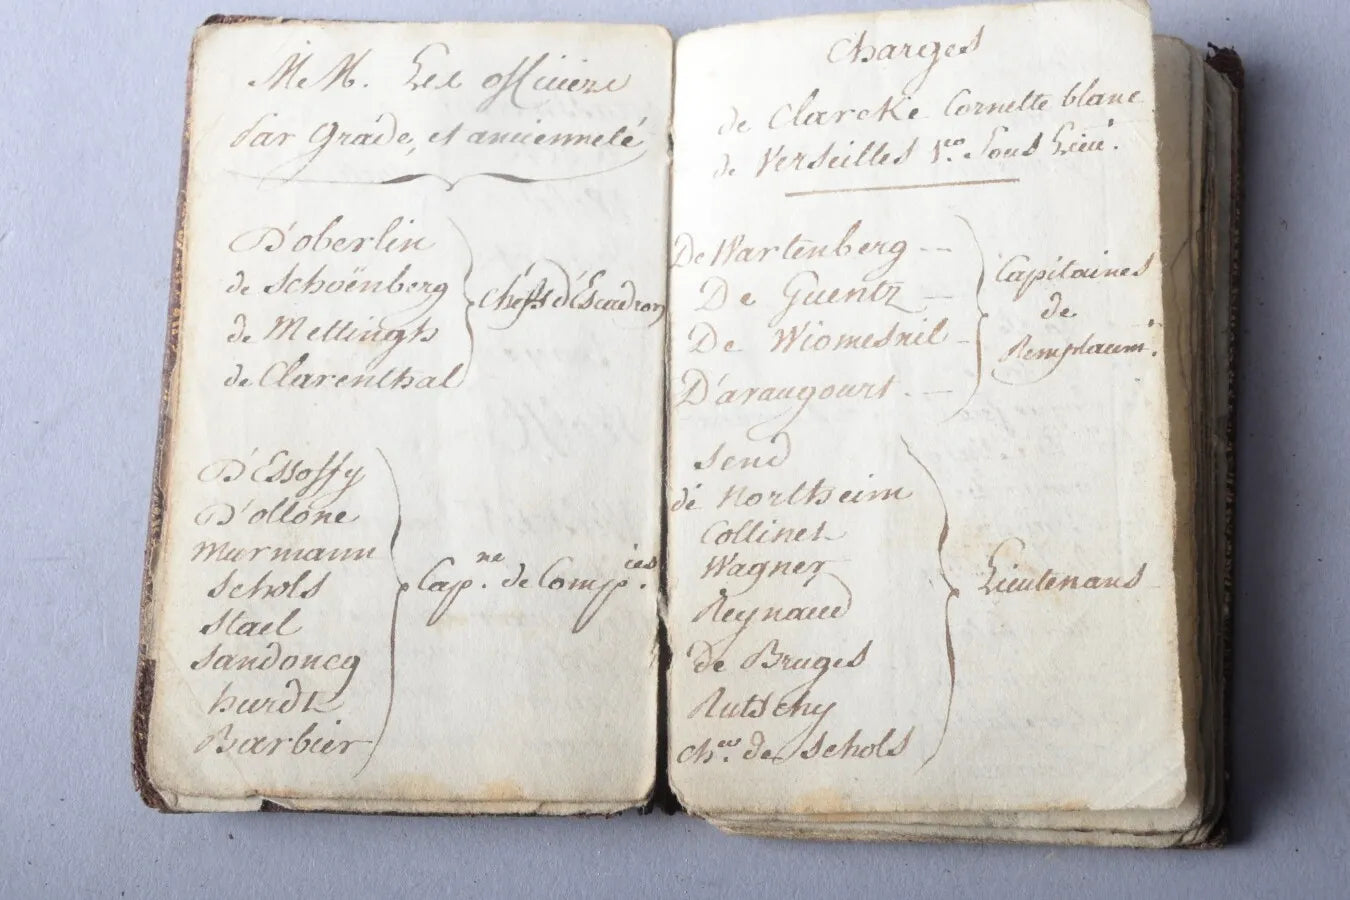 MM. Les officiers
Par Grade, et ancienneté
D'oberlin
de Schoënberg
de Mettingh
de Clarenthal
Chefs d'Escadron
D'Essoffy
D'ollone
Murmann
Schols
Stael
Sandoncq
hurdt
Barbier
Cap.ne de Comp.ies
Charges
de Clarcke Cornette blanc
de Verseilles 1.er Sous Lieu.t
De Wartenberg -
De Guentz -
De Wiomesnil -
D'araugourt . -
Capitaines
de
Remplacem.t
Send
de Northeim
Collinet
Wagner
Reynaud
de Bruges
Rutschy
Ch.er de Schols
Lieutenans